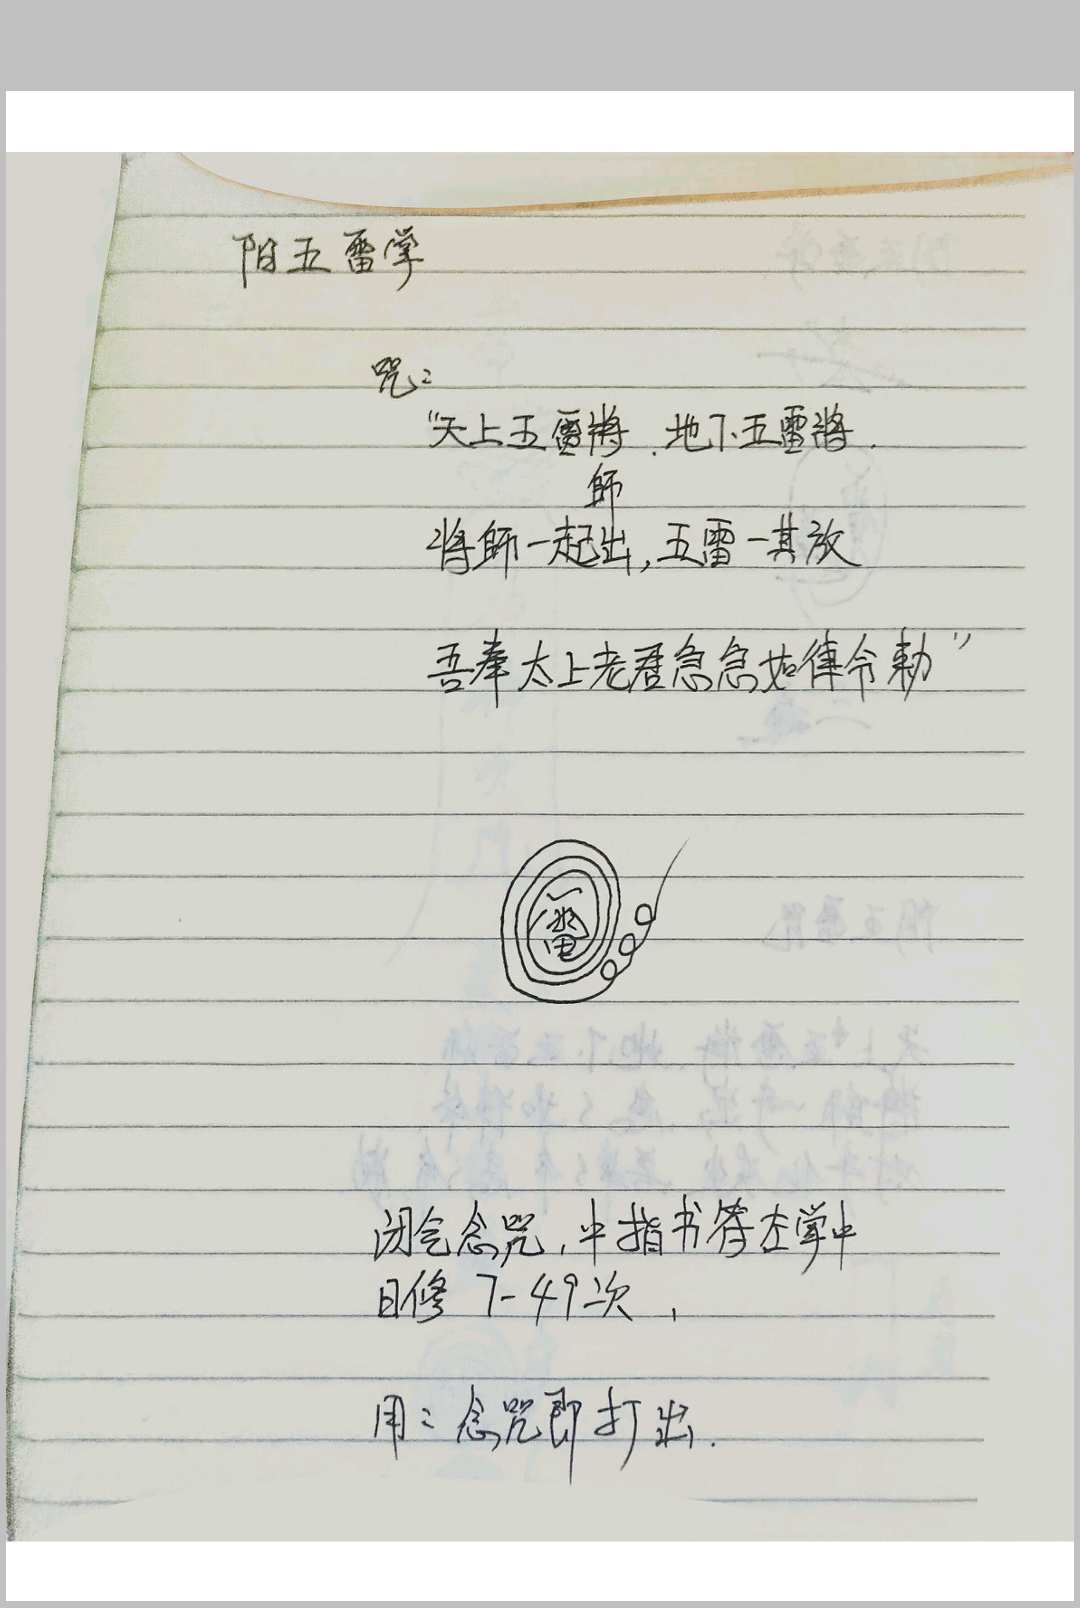 阳五雷掌
咒：
“天上五雷將．地下五雷將．
師
將師一起出，五雷一其放
吾奉太上老君急急如律令勅”
雷
闭气念咒，中指书符在掌中
日修 7-49次，
用：念咒即打出．